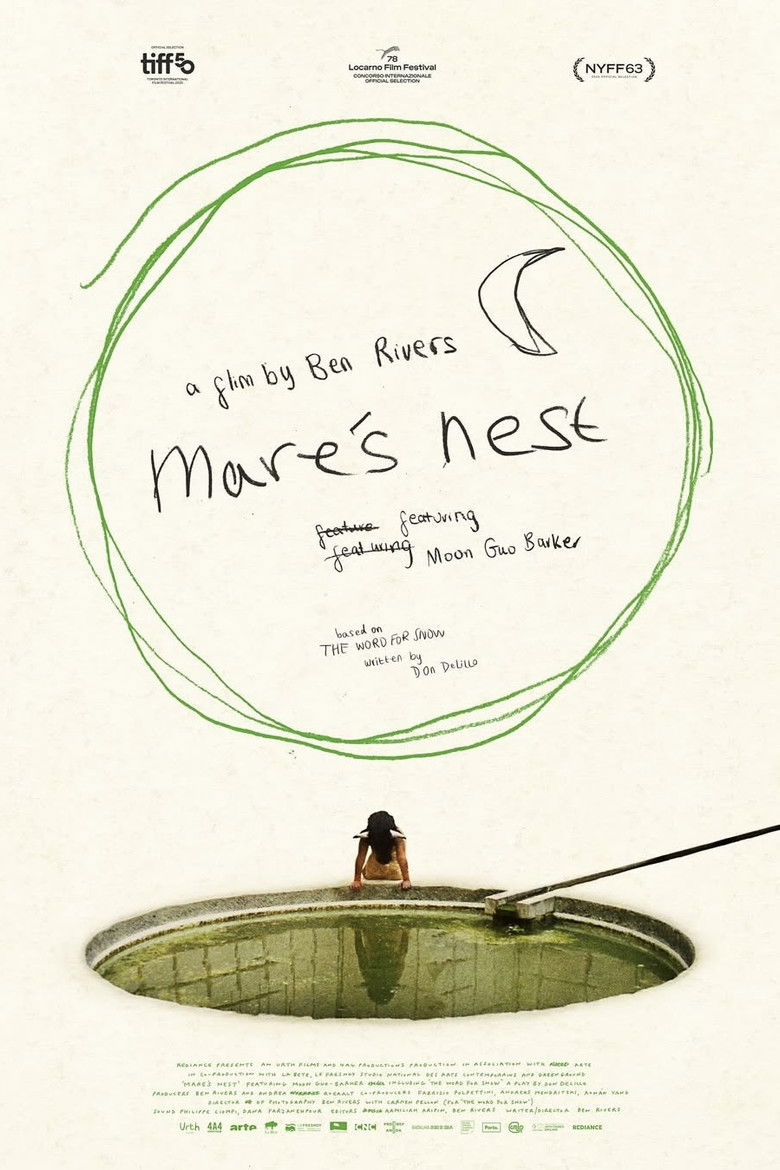 OFFICIAL SELECTION
tiff50
TORONTO INTERNATIONAL
FILM FESTIVAL 2025
78
Locarno Film Festival
CONCORSO INTERNAZIONALE
OFFICIAL SELECTION
NYFF63
2025 OFFICIAL SELECTION
a film by Ben Rivers
Mare's nest
feature featuring
featuring Moon Guo Barker
based on
THE WORD FOR SNOW
written by
Don DeLillo
REDIANCE PRESENTS AN URTH FILMS AND HAG PRODUCTIONS PRODUCTION IN ASSOCIATION WITH ARTE
IN CO-PRODUCTION WITH LA BÊTE, LE FRESNOY STUDIO NATIONAL DES ARTS CONTEMPORAINS AND GREENGROUND
'MARE'S NEST' FEATURING MOON GUO-BARKER INCLUDING 'THE WORD FOR SNOW' A PLAY BY DON DELILLO
PRODUCERS BEN RIVERS AND ANDREA CO-PRODUCERS FABRIZIO POLPETTINI,
DIRECTOR OF PHOTOGRAPHY BEN RIVERS WITH CARMEN PELLON (FOR 'THE WORD FOR SNOW')
SOUND PHILIPPE CIOMPI, EDITORS ARMILIAH ARIPIN, BEN RIVERS WRITER/DIRECTOR BEN RIVERS
Urth 4A4 arte LE FRESNOY CNC REDIANCE